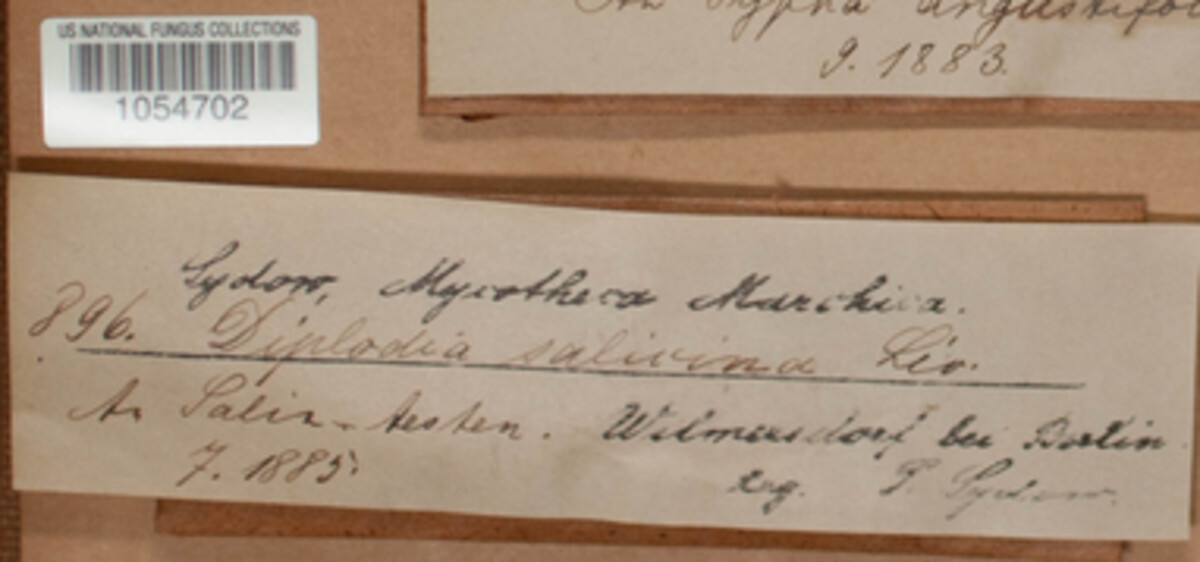 US NATIONAL FUNGUS COLLECTIONS
1054702
An Typha angustifol
9. 1883.
Sydow, Mycotheca Marchica.
896. Diplodia salicina Lév.
An Salix-Aesten. Wilmersdorf bei Berlin
7. 1885.
Leg. P. Sydow.